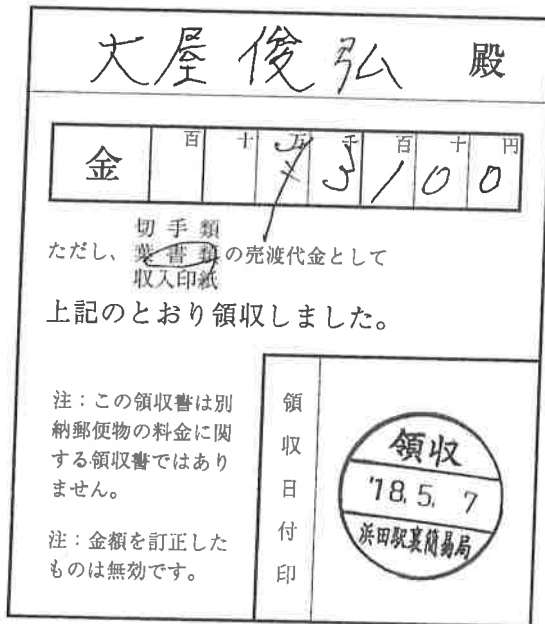 大屋俊弘 殿
金 百 十 万 千 百 十 円
¥ 3 1 0 0
切手類
ただし、 葉書類 の売渡代金として
収入印紙
上記のとおり領収しました。
注：この領収書は別
納郵便物の料金に関
する領収書ではあり
ません。
注：金額を訂正した
ものは無効です。
領収日付印
領収
'18.5.7
浜田駅裏簡易局